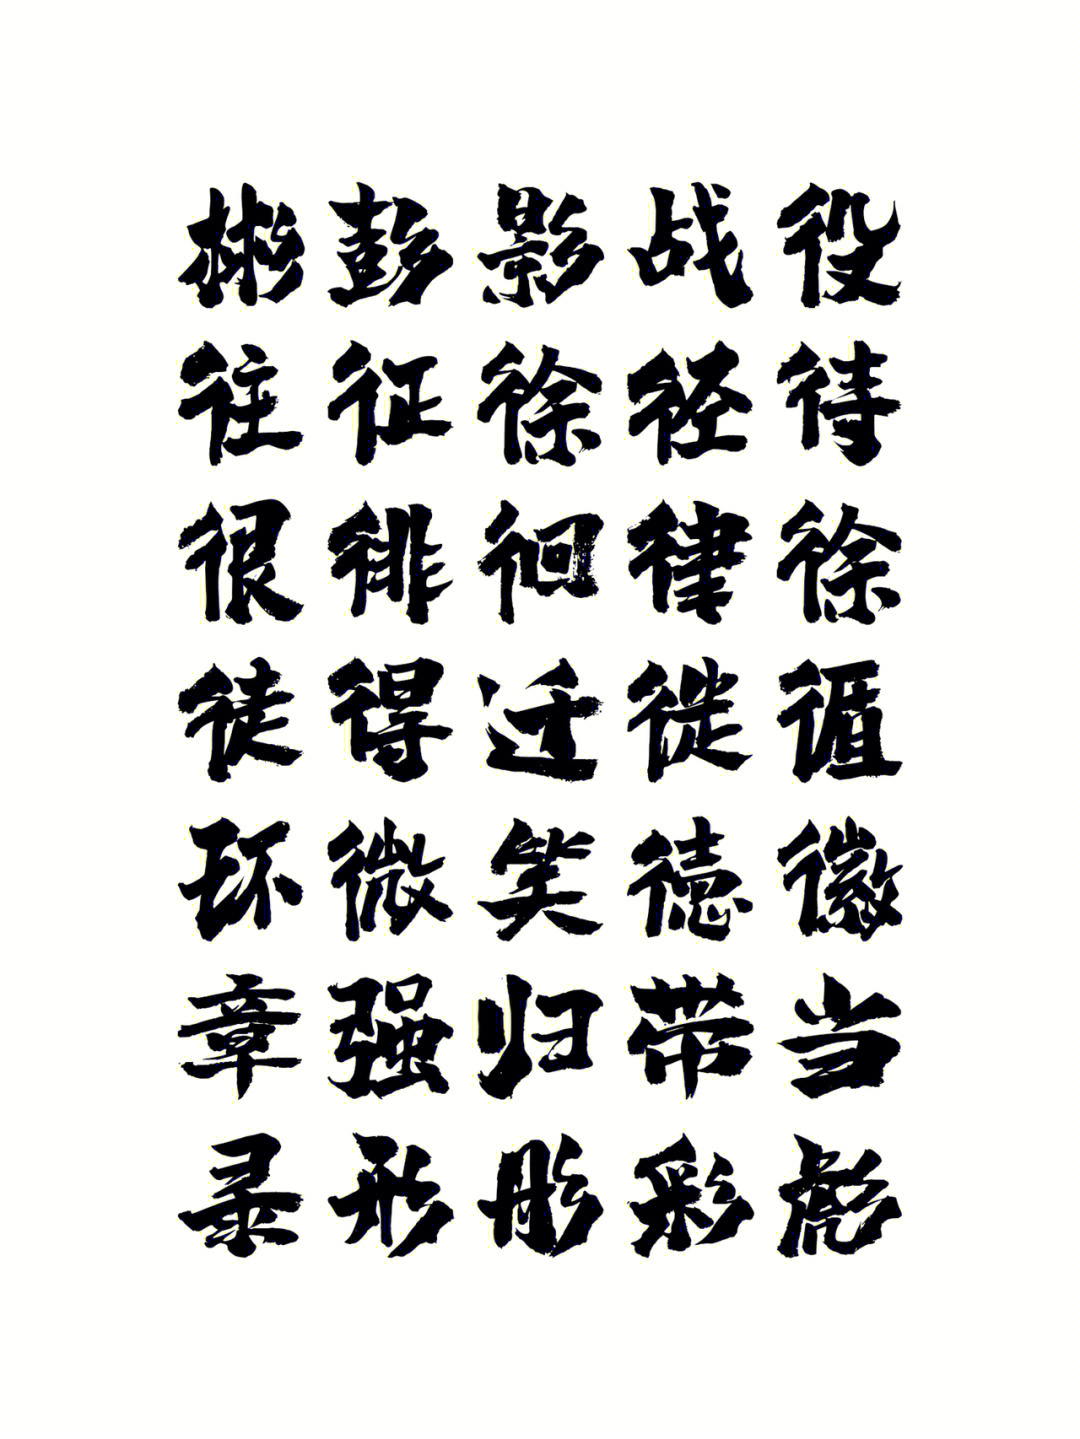 彬彭影战役
往征徐径待
很徘徊律徐
徒得迁徙循
环微笑德徽
章强归带当
录形彤彩彪